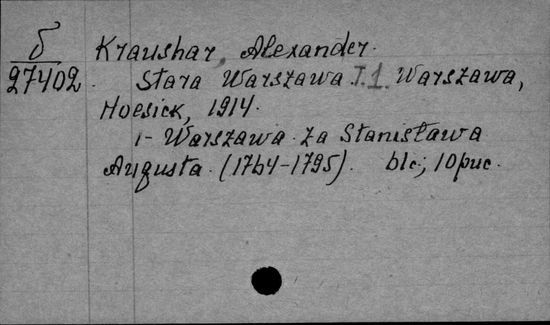 б Kraushar, Alexander.
27402. Stara Warszawa. T.1. Warszawa,
Hoesick, 1914.
1- Warszawa za Stanisława
Augusta. (1764-1795). blc; 10рис.